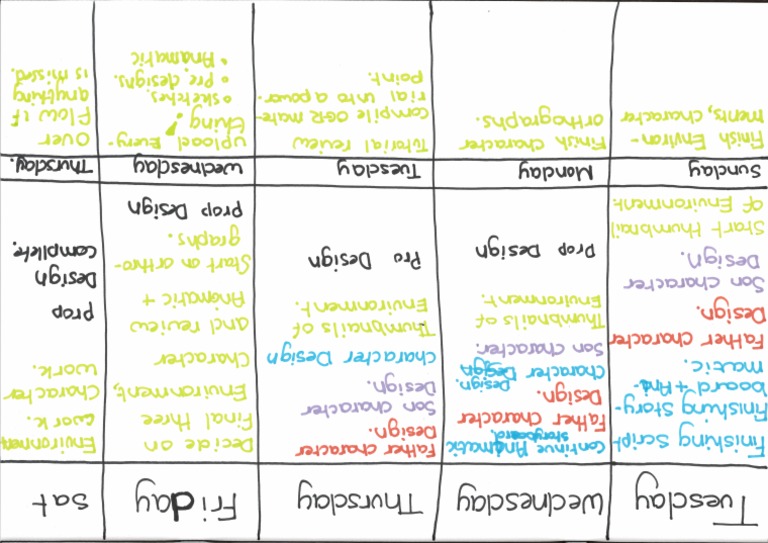 Tuesday
Finishing Script
Finishing Story-
board + Ani-
matic.
Father Character
Design.
Son Character
Design.
Start thumbnail
of Environment
Wednesday
Continue Animatic
storyboard,
Father Character
Design.
Character Design
Design.
Son Character.
Thumbnails of
Environment.
Prop Design
Thursday
Father character
Design.
Son Character
Design.
Character Design
Thumbnails of
Environment.
Pro Design
Friday
Decide on
Final three
Environment,
Character
and review
Animatic +
Start on orthro-
graphs.
Prop Design
Sat
Environment
work.
Character
work.
prop
Design
Compllete.
Sunday
Finish Environ-
ments, character
Monday
Finish Character
orthographs.
Tuesday
Tutorial review
Compile OGR mate-
rial unto a power-
Point.
Wednesday
upload Every-
thing!
• sketches.
• Pre designs.
• Anamatic
Thursday.
Over
Flow if
anything
is missed.